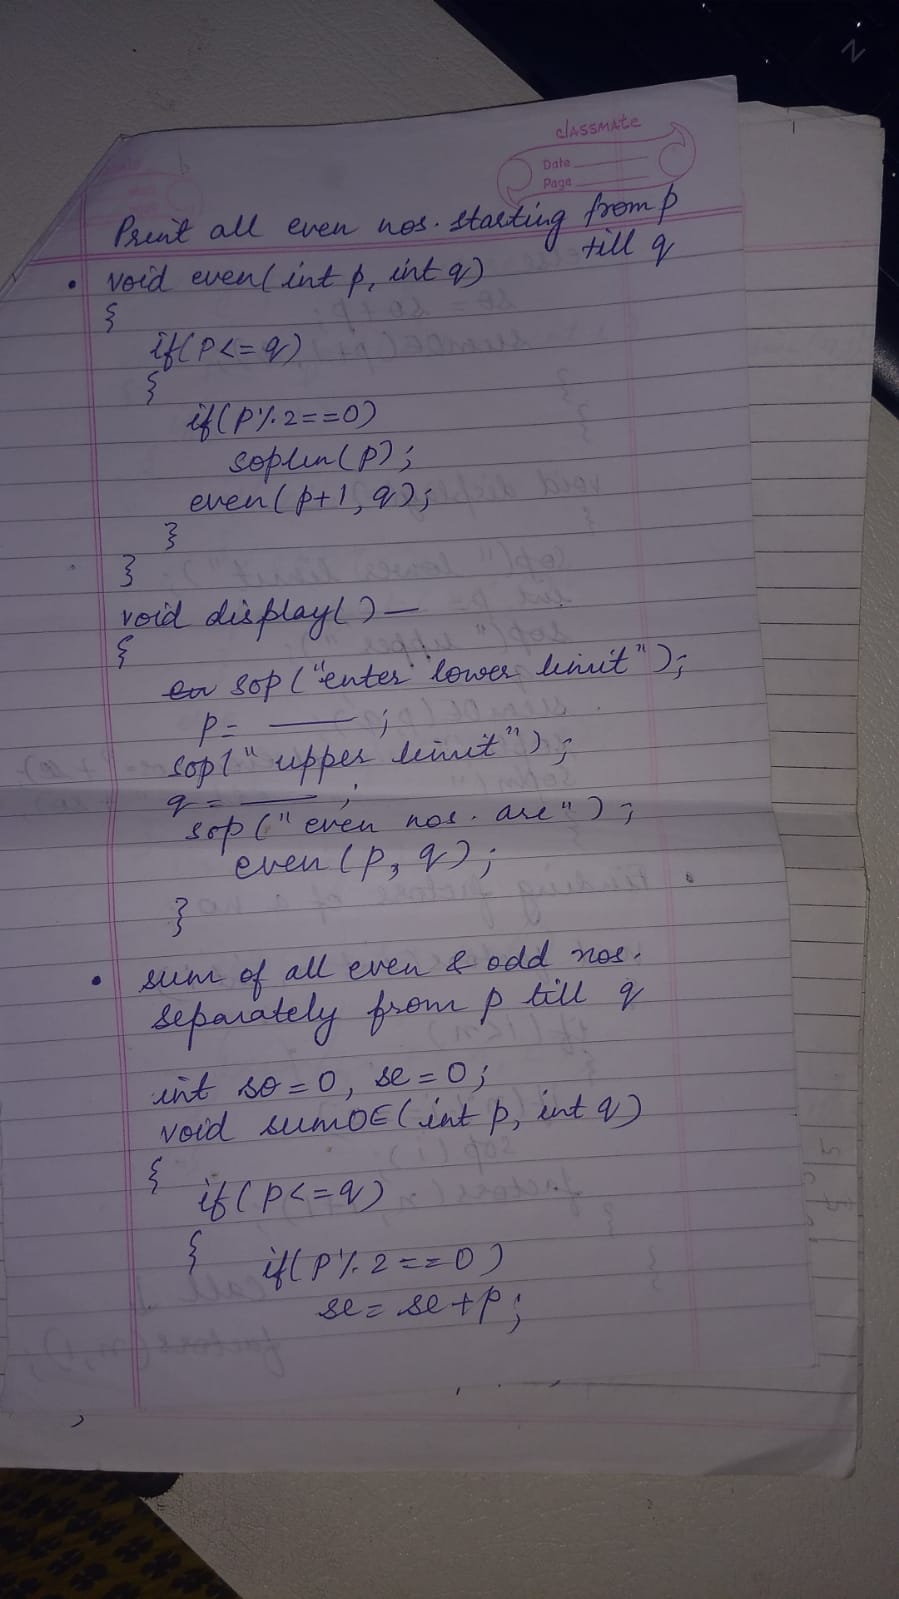 classmate
Date
Page
Print all even nos. starting from p
till q
• void even(int p, int q)
{
if(P<=q)
{
if(P%2==0)
sopln(p);
even(p+1,q);
}
}
void display()—
{
sop("enter lower limit");
p= ——;
sop("upper limit");
q= ——;
sop("even nos. are");
even(p,q);
}
• sum of all even & odd nos.
separately from p till q
int so=0, se=0;
void sumOE(int p, int q)
{
if(P<=q)
{ if(P%2==0)
se=se+p;